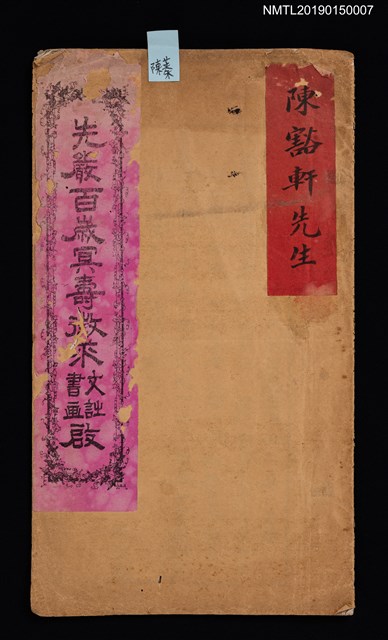 NMTL20190150007
陳豁軒先生
先嚴百歲冥壽徵求文詩書画啟